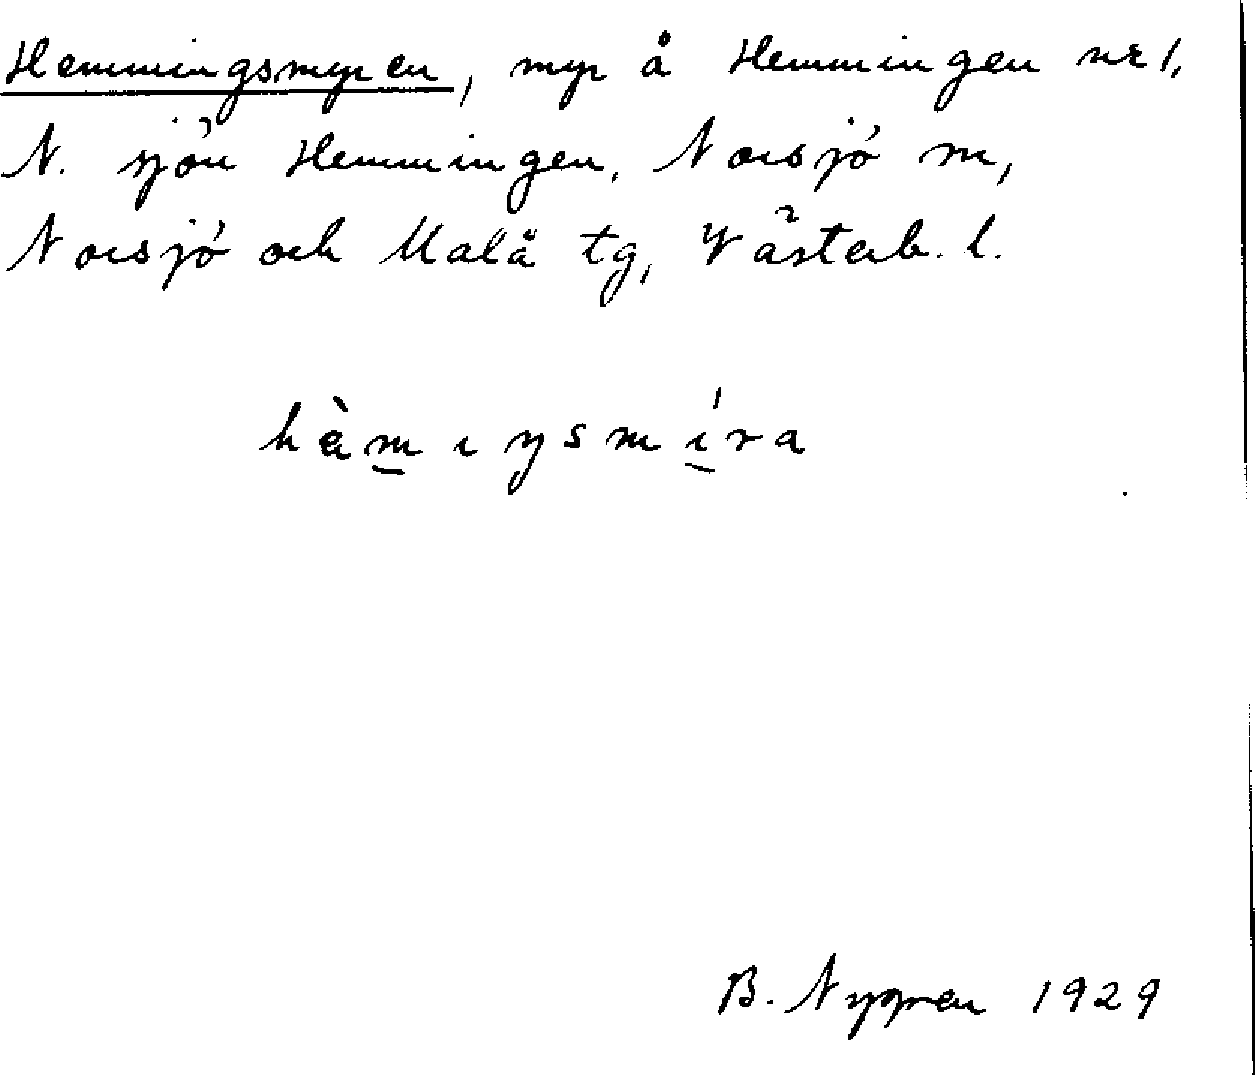 Hemmingsmyren, myr å Hemmingen nr 1,
N. sjön Hemmingen, Norsjö sn,
Norsjö och Malå tg, Västerb. l.
hèm̲ıŋsmí̲ra
B. Nygren 1929